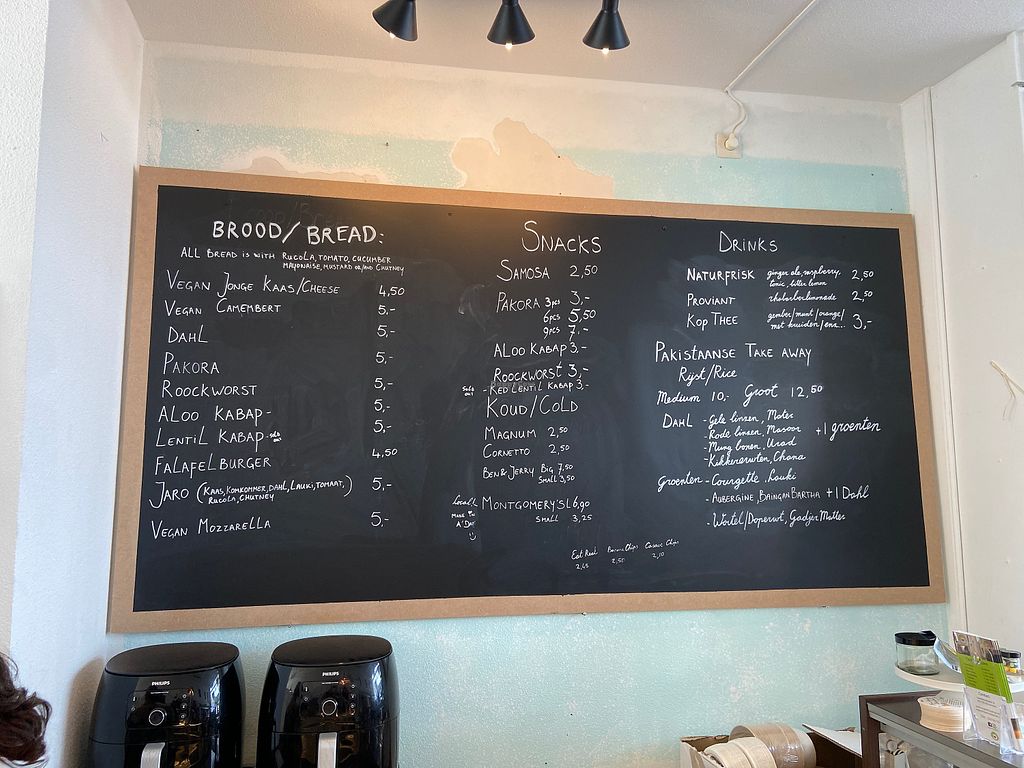 BROOD/BREAD:
ALL BREAD IS WITH RUCOLA, TOMATO, CUCUMBER
MAYONAISE, MUSTARD OR/AND CHUTNEY
VEGAN JONGE KAAS/CHEESE 4,50
VEGAN CAMEMBERT 5,-
DAHL 5,-
PAKORA 5,-
ROOCKWORST 5,-
ALOO KABAP- 5,-
LENTIL KABAP- 5,-
FALAFEL BURGER 4,50
JARO (KAAS, KOMKOMMER, DAHL, LAUKI, TOMAAT, 5,-
RUCOLA, CHUTNEY)
VEGAN MOZZARELLA 5,-
SNACKS
SAMOSA 2,50
PAKORA 3pcs 3,-
6pcs 5,50
9pcs 7,-
ALOO KABAP 3,-
ROOCKWORST 3,-
Sold out - RED LENTIL KABAP 3,-
KOUD/COLD
MAGNUM 2,50
CORNETTO 2,50
BEN & JERRY BIG 7,50
SMALL 3,50
MONTGOMERY'S L 6,90
SMALL 3,25
Local
MAKE
A DAY
Eat Real
2,45
Chips
2,50
Chips
2,10
DRINKS
NATURFRISK ginger ale, raspberry, 2,50
tonic, bitter lemon
PROVIANT rhabarberlemonade 2,50
KOP THEE gember/munt/orange/ 3,-
met kruiden/enz...
PAKISTAANSE TAKE AWAY
Rijst/Rice
Medium 10,- Groot 12,50
DAHL - Gele linzen, Mater
- Rode linzen, Masoor +1 groenten
- Mung bonen, Urad
- Kikkererwten, Chana
Groenten - Courgette, Louki
- AUBERGINE, BAINGAN BARTHA +1 Dahl
- Wortel/Doperwt, Gadjer Matter
PHILIPS
PHILIPS